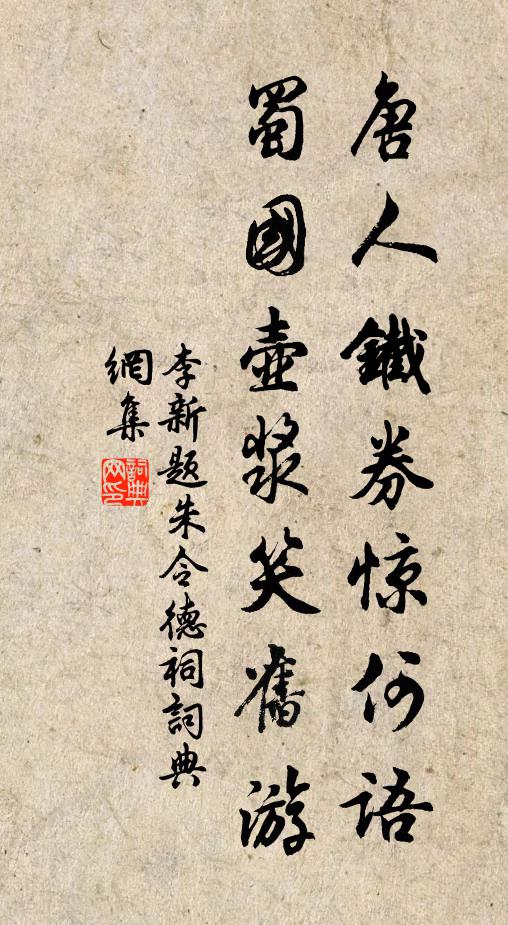 唐人鐵券惊何語
蜀國壺漿笑舊游
李新题朱令德祠詞典
網集
詞典网印